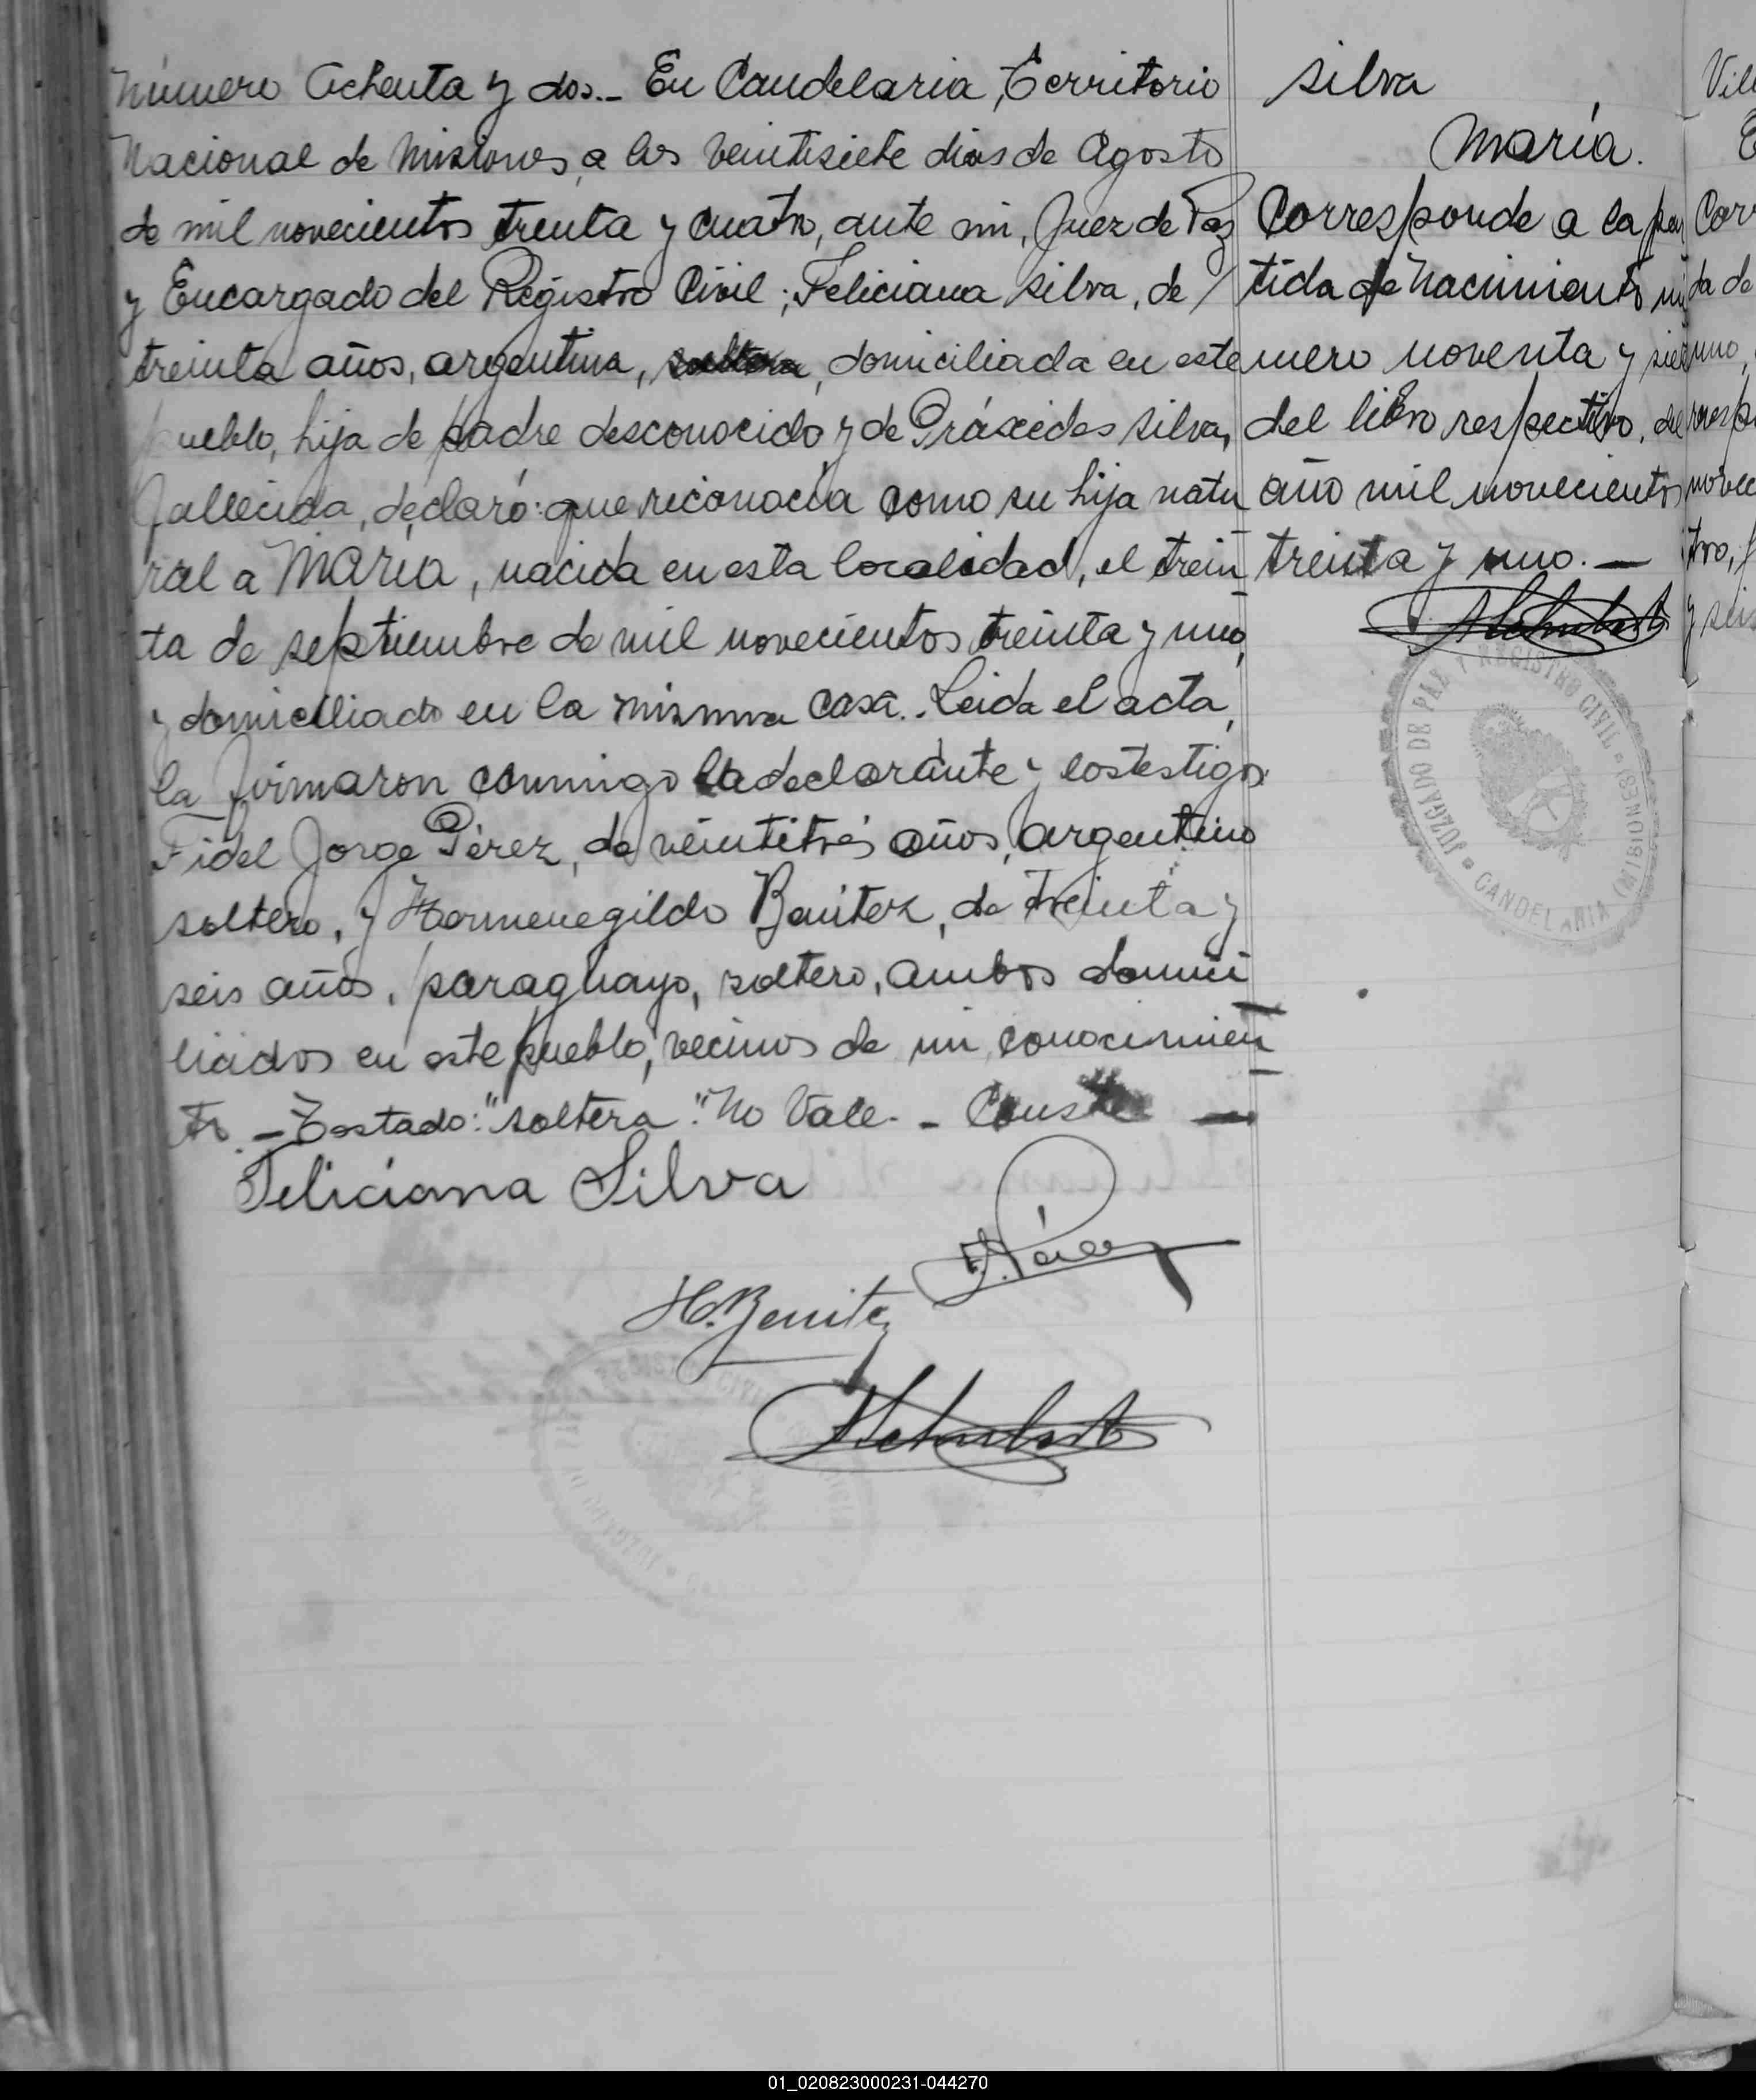 Número Ochenta y dos.- En Candelaria, Territorio
Nacional de Misiones, a los veintisiete dias de Agosto
de mil novecientos treinta y cuatro, ante mi, Juez de Paz
y Encargado del Registro Civil; Feliciana Silva, de
treinta años, argentina, soltera, domiciliada en este
pueblo, hija de padre desconocido y de Práxedes Silva,
fallecida, declaró: que reconocía como su hija natu
ral a María, nacida en esta localidad, el trein
ta de septiembre de mil novecientos treinta y uno,
y domiciliado en la misma casa.. Leida el acta,
la firmaron conmigo la declarante y los testigos
Fidel Jorge Pérez, de veintitrés años, argentino
soltero, y Hermenegildo Benitez, de treinta y
seis años, paraguayo, soltero, ambos domici
liados en este pueblo, vecinos de mi conocimien
to. - Testado: "soltera". No Vale. - Conste -
Feliciana Silva
F. Pérez
H. Benitez
Silva
María.
Corresponde a la par
tida de Nacimiento nú
mero noventa y siete
del libro respectivo, del
año mil novecientos
treinta y uno. -
JUZGADO DE PAZ Y REGISTRO CIVIL
CANDELARIA (MISIONES)
Vill
E
Corr
da de
uno,
novec
tro, f
y seis
01_020823000231-044270